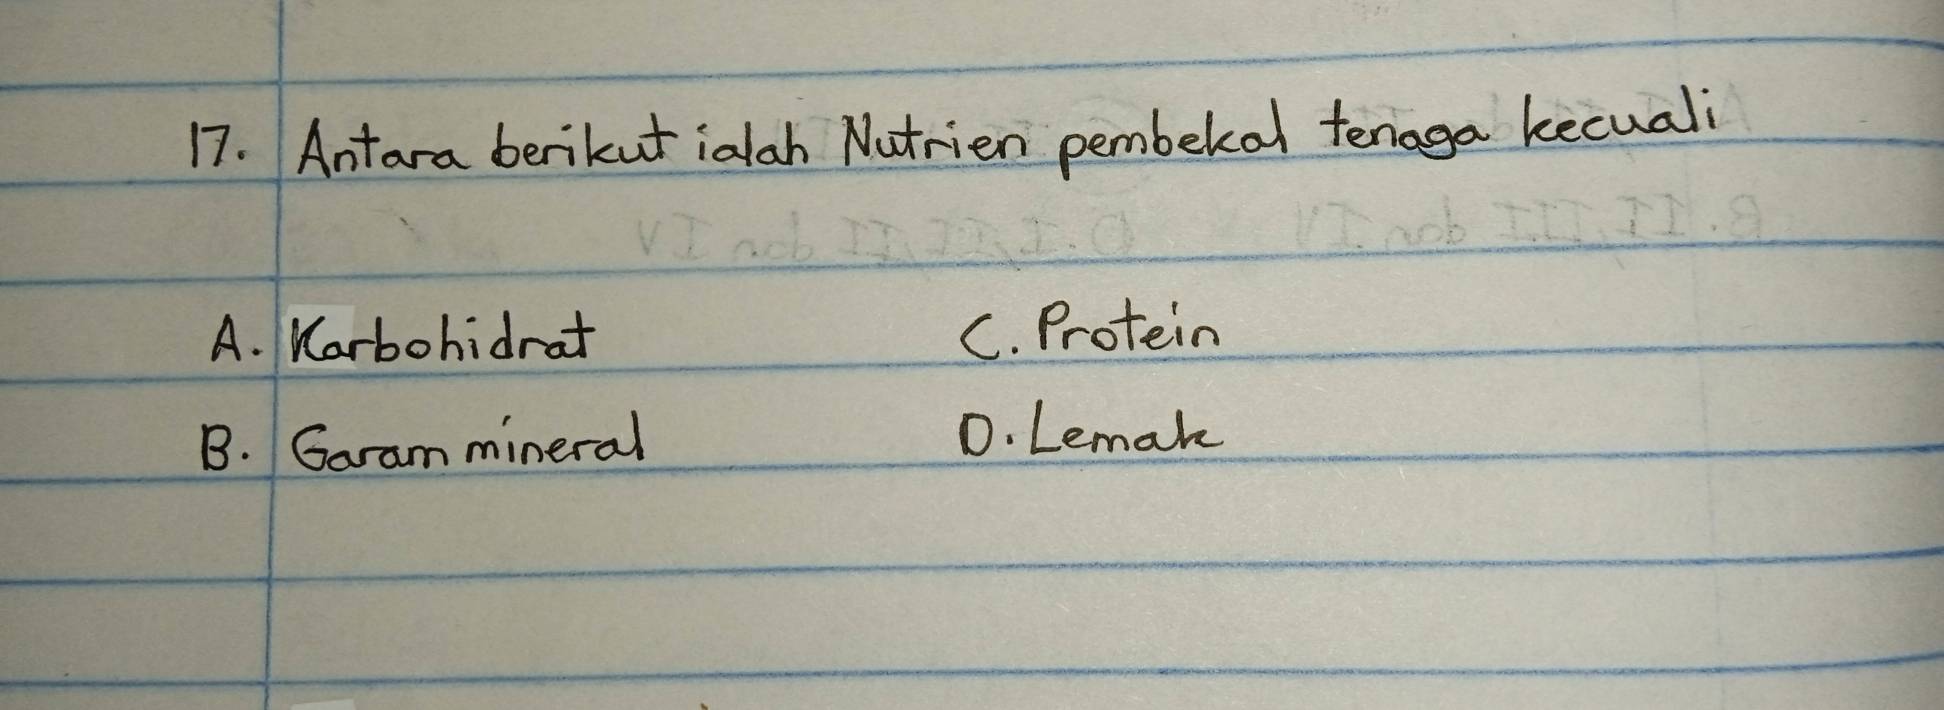 17. Antara berikut ialah Nutrien pembekal tenaga kecuali
A. Karbohidrat C. Protein
B. Garam mineral D. Lemak